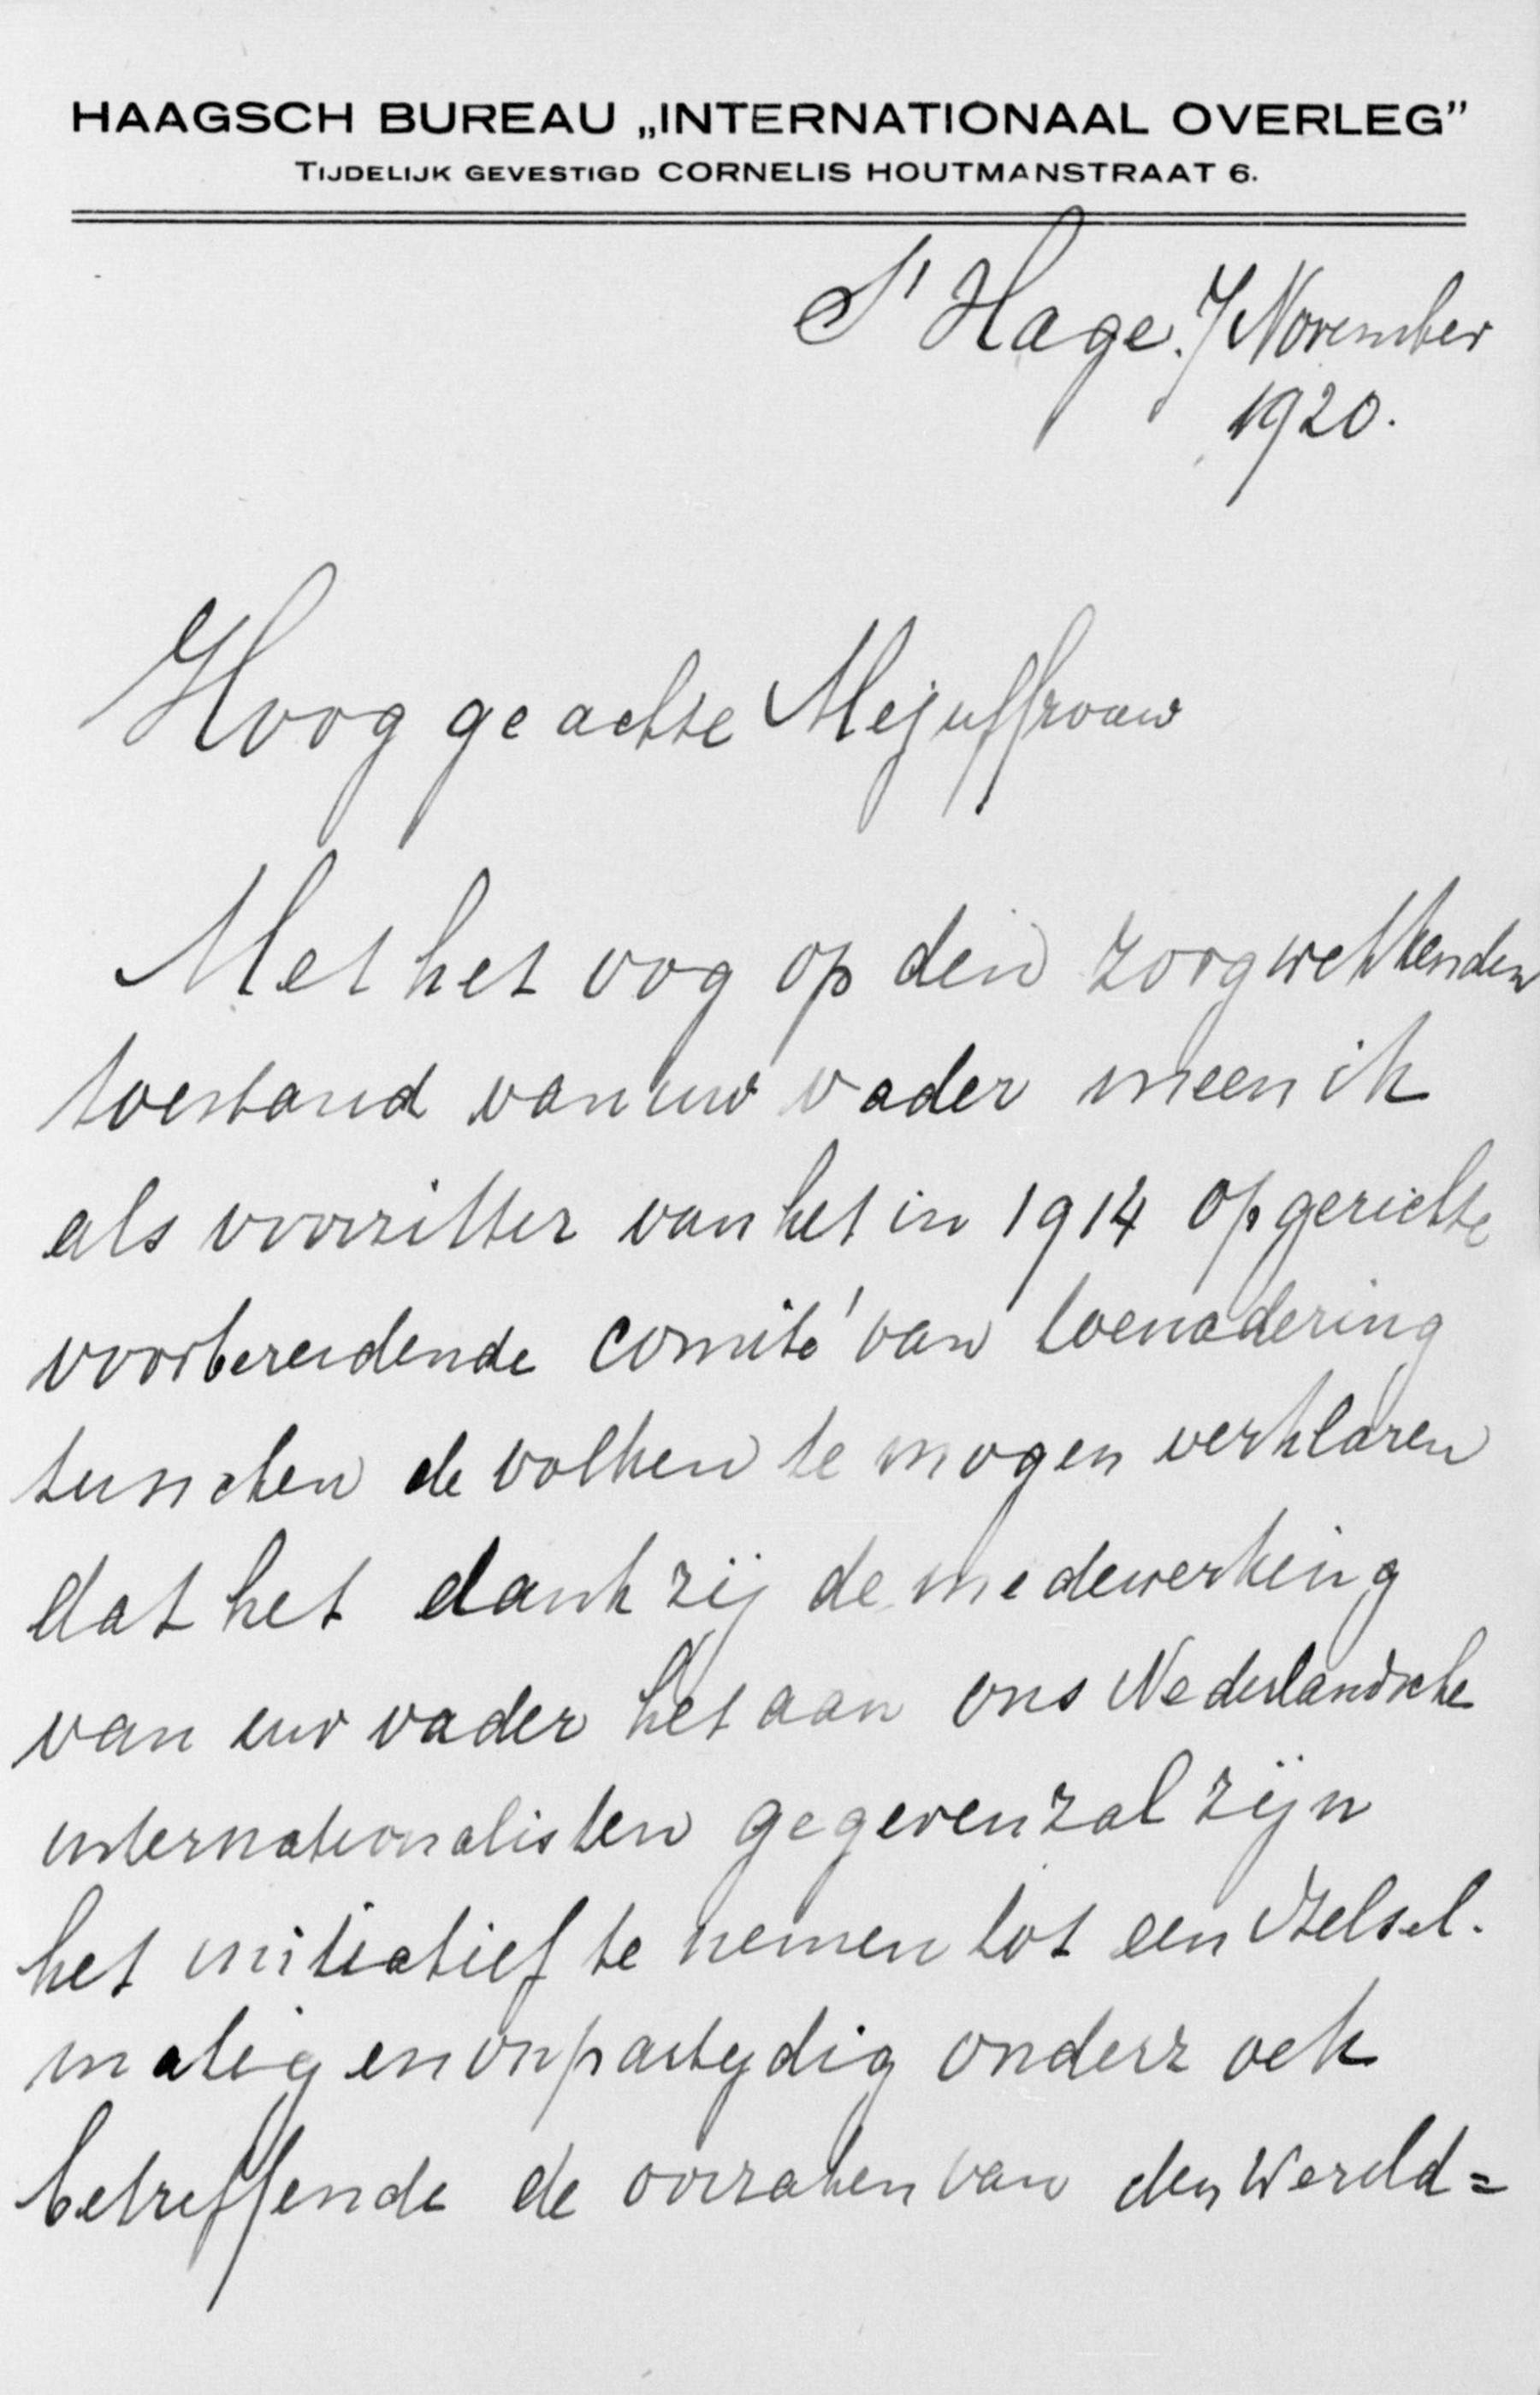 HAAGSCH BUREAU „INTERNATIONAAL OVERLEG”
TIJDELIJK GEVESTIGD CORNELIS HOUTMANSTRAAT 6.
S' Hage. 7 November
1920.
Hooggeachte Mejuffrouw
Met het oog op den zorgwekkenden
toestand van uw vader meen ik
als voorzitter van het in 1914 opgerichte
voorbereidende comité van toenadering
tusschen de volken te mogen verklaren
dat het dank zij de medewerking
van uw vader het aan ons Nederlandsche
internationalisten gegeven zal zijn
het initiatief te nemen tot een stelsel-
matig en onpartydig onderzoek
betreffende de oorzaken van den Wereld=